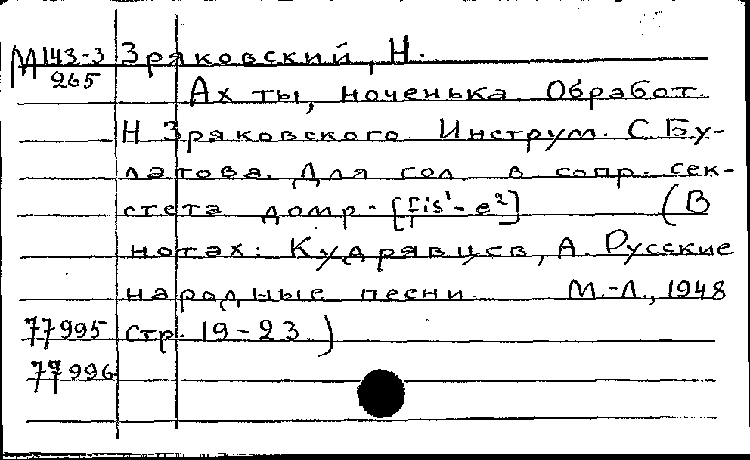 М 143-3 Зряковский, Н.
265
Ах ты, ноченька. Обработ.
Н. Зряковского. Инструм. С. Бу-
латова. Для гол. в сопр. сек-
стета домр. [fis¹-e²] (В
нотах: Кудрявцев, А. Русские
народные песни М.-Л., 1948
77995 стр. 19-23.)
77996